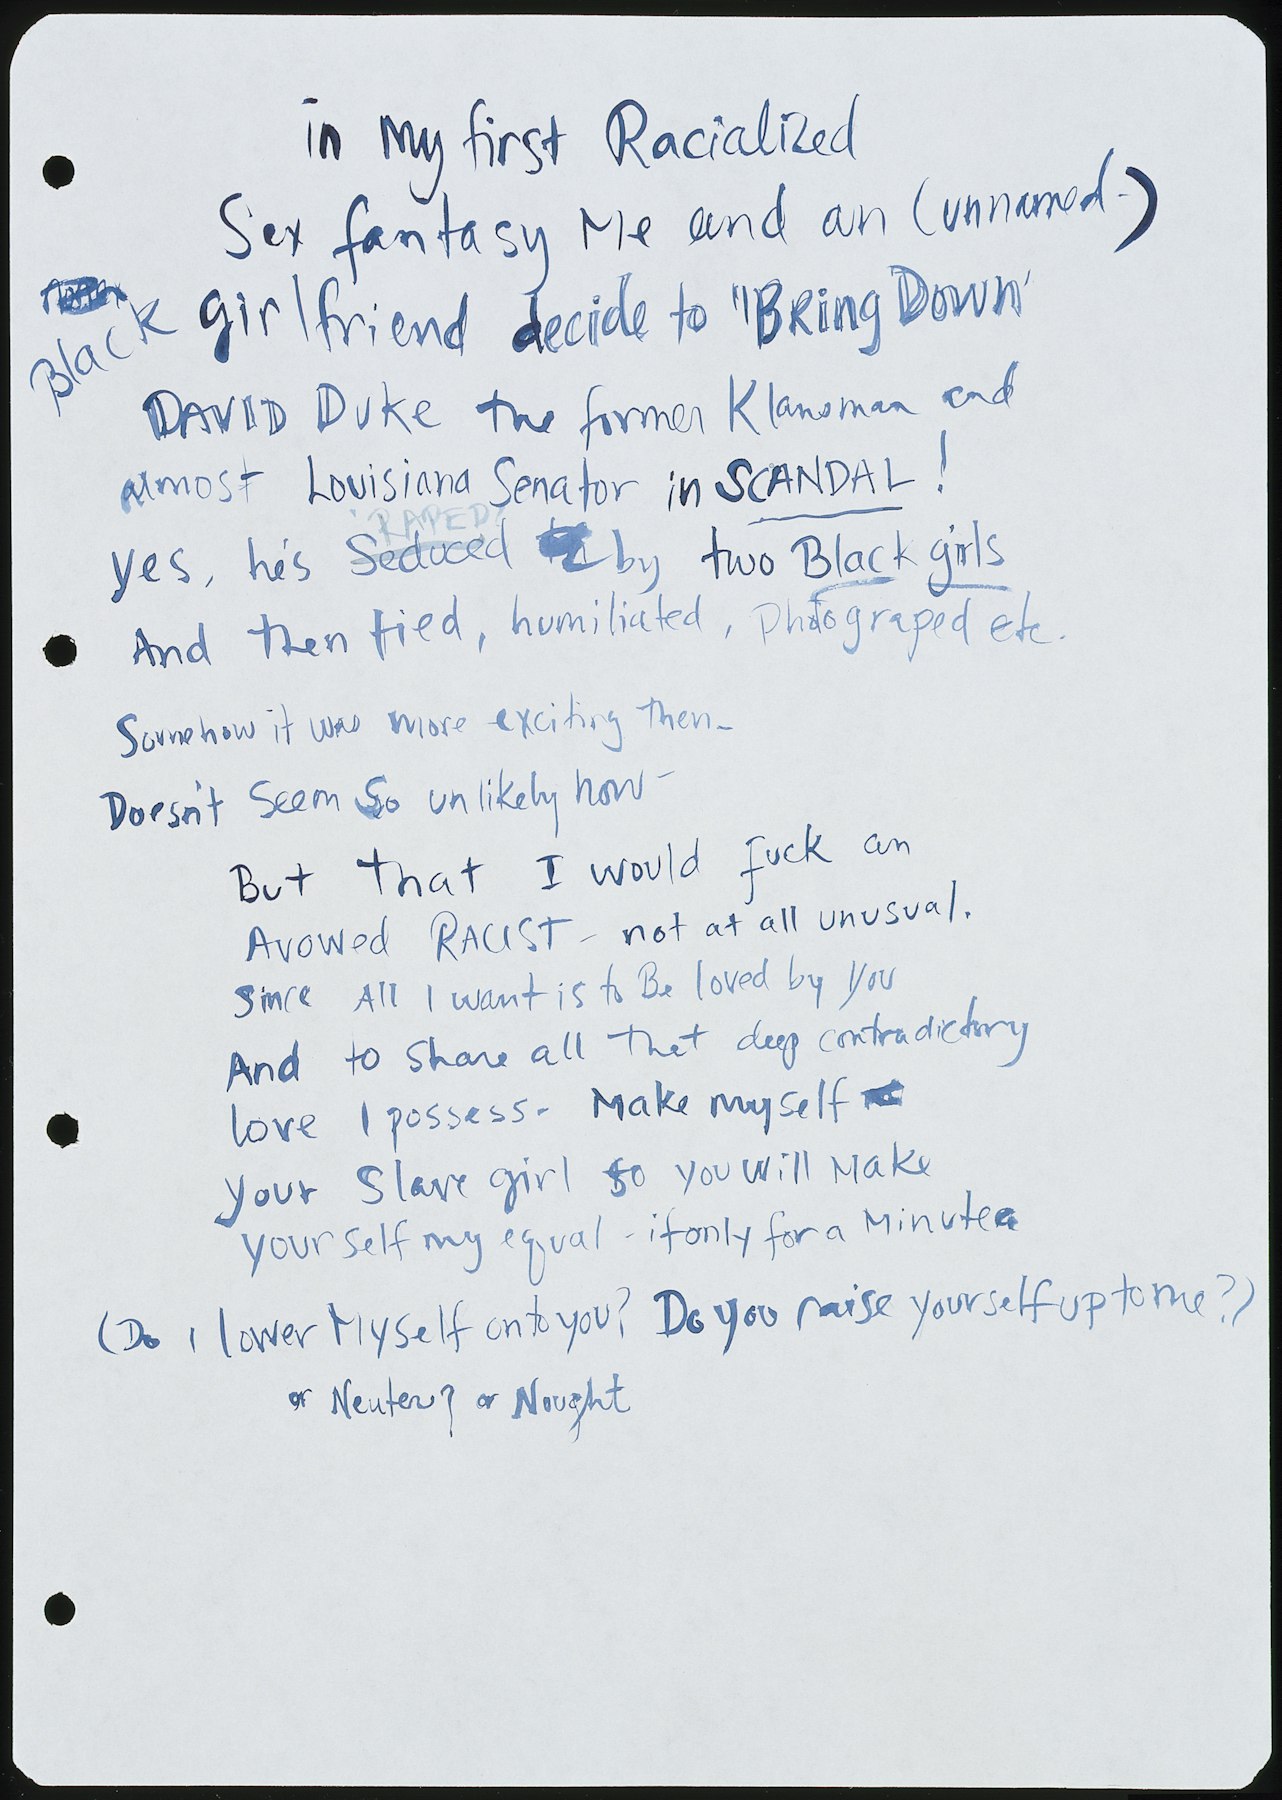 in My first Racialized
Sex fantasy Me and an (unnamed-)
Black girlfriend decide to "Bring Down"
DAVID Duke the former Klansman and
almost Louisiana Senator in SCANDAL!
'RAPED'
yes, he's Seduced by two Black girls
And then tied, humiliated, photograped etc.
Somehow it was more exciting then-
Doesn't Seem So unlikely now-
But that I would fuck an
Avowed RACIST - not at all unusual.
Since All I want is to Be loved by you
And to share all that deep contradictory
love I possess- Make myself
your Slave girl so you will Make
yourself my equal - if only for a Minute
(Do I lower Myself onto you? Do you raise yourself up to me?)
or Neuter? or Nought